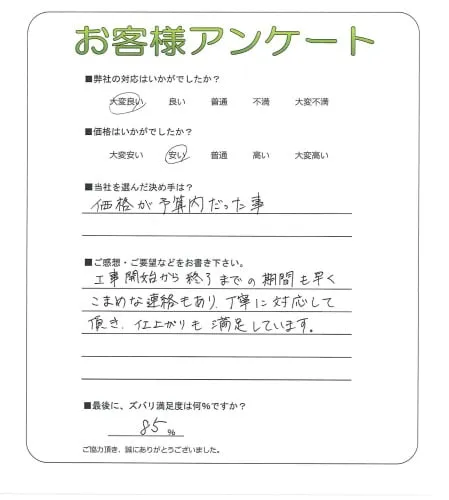 お客様アンケート
■弊社の対応はいかがでしたか？
大変良い 良い 普通 不満 大変不満
■価格はいかがでしたか？
大変安い 安い 普通 高い 大変高い
■当社を選んだ決め手は？
価格が予算内だった事
■ご感想・ご要望などをお書き下さい。
工事開始から終了までの期間も早く
こまめな連絡もあり、丁寧に対応して
頂き、仕上がりも満足しています。
■最後に、ズバリ満足度は何%ですか？
85%
ご協力頂き、誠にありがとうございました。